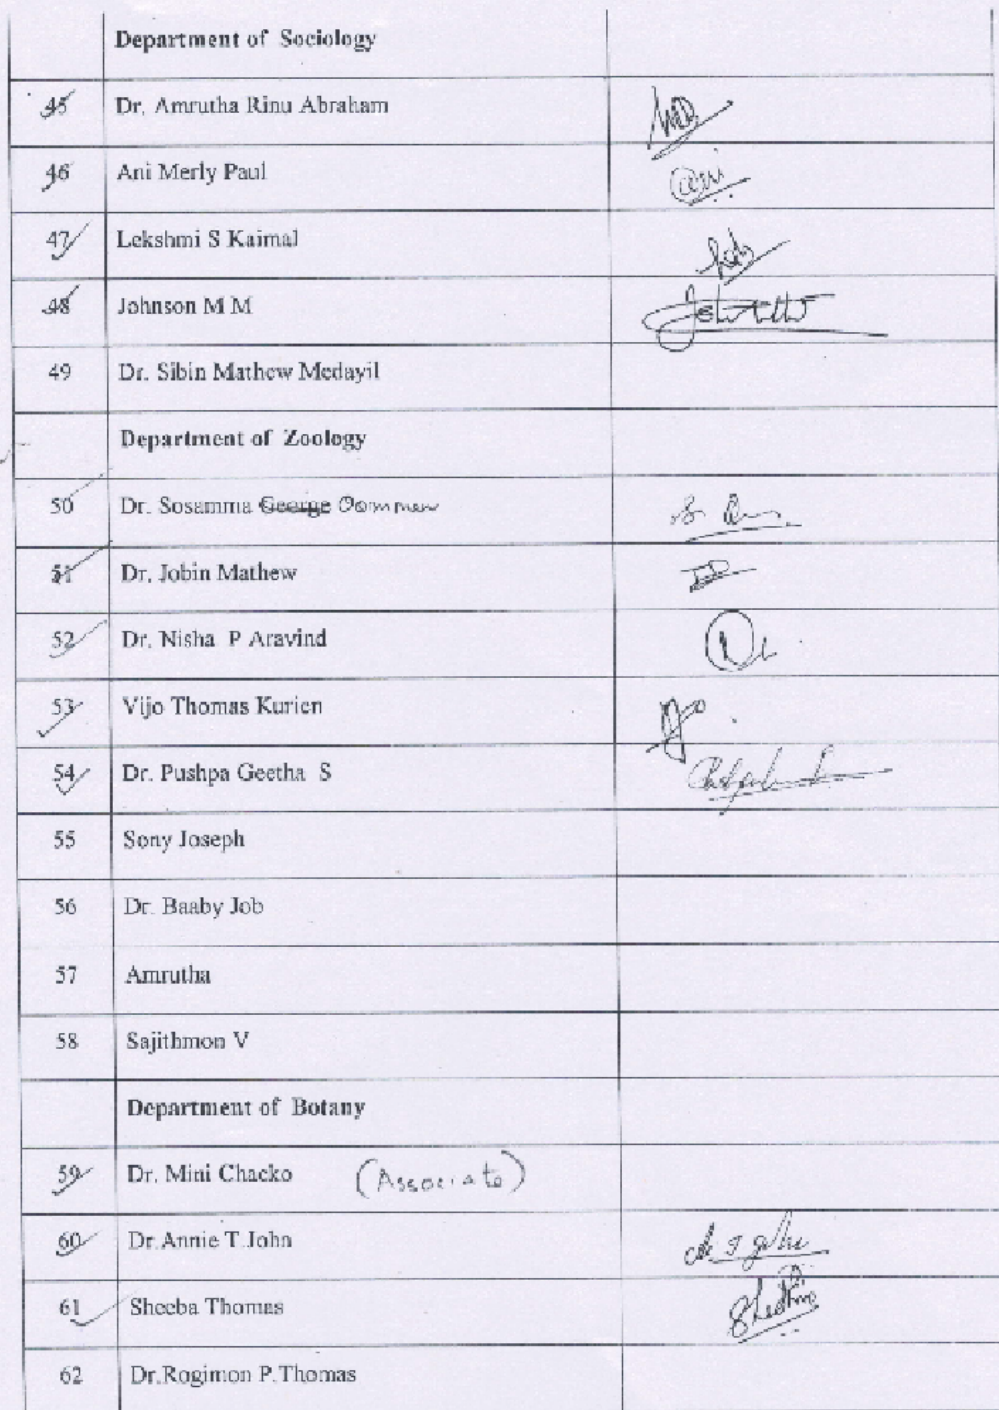 Department of Sociology
45 Dr. Amrutha Rinu Abraham
46 Ani Merly Paul
47 Lekshmi S Kaimal
48 Johnson M M
49 Dr. Sibin Mathew Medayil
Department of Zoology
50 Dr. Sosamma George Oommen
51 Dr. Jobin Mathew
52 Dr. Nisha P Aravind
53 Vijo Thomas Kurien
54 Dr. Pushpa Geetha S
55 Sony Joseph
56 Dr. Baaby Job
57 Amrutha
58 Sajithmon V
Department of Botany
59 Dr. Mini Chacko (Associate)
60 Dr.Annie T.John
61 Sheeba Thomas
62 Dr.Rogimon P.Thomas